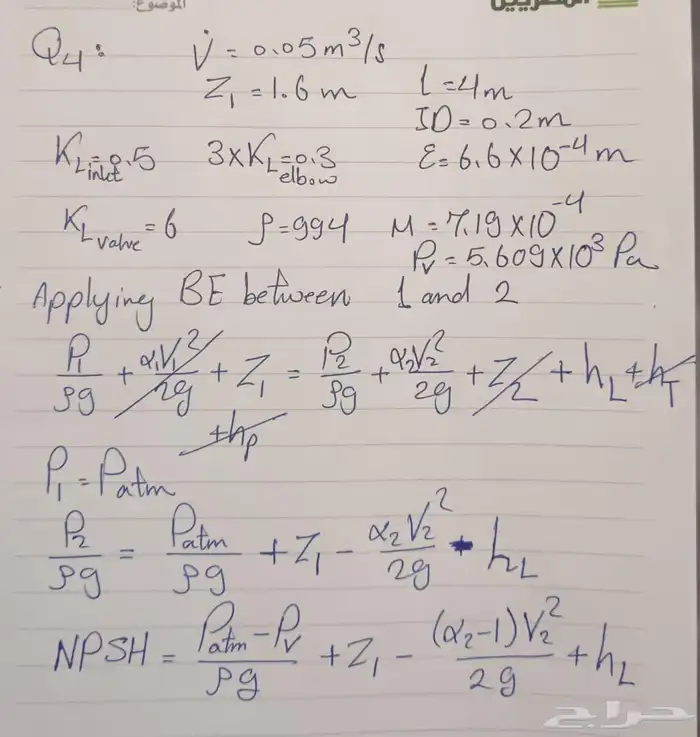 الموضوع:
المصريين
Q4: V̇ = 0.05 m³/s
Z₁ = 1.6 m l = 4m
ID = 0.2 m
K_L inlet = 0.5 3×K_L elbow = 0.3 ε = 6.6 × 10⁻⁴ m
K_L valve = 6 ρ = 994 M = 7.19 × 10⁻⁴
P_v = 5.609 × 10³ Pa
Applying BE between 1 and 2
P₁/ρg + α₁V₁²/2g + Z₁ = P₂/ρg + α₂V₂²/2g + Z₂ + h_L + h_T
+hp
P₁ = Patm
P₂/ρg = Patm/ρg + Z₁ - α₂V₂²/2g - h_L
NPSH = (Patm - P_v)/ρg + Z₁ - (α₂-1)V₂²/2g + h_L
حراج